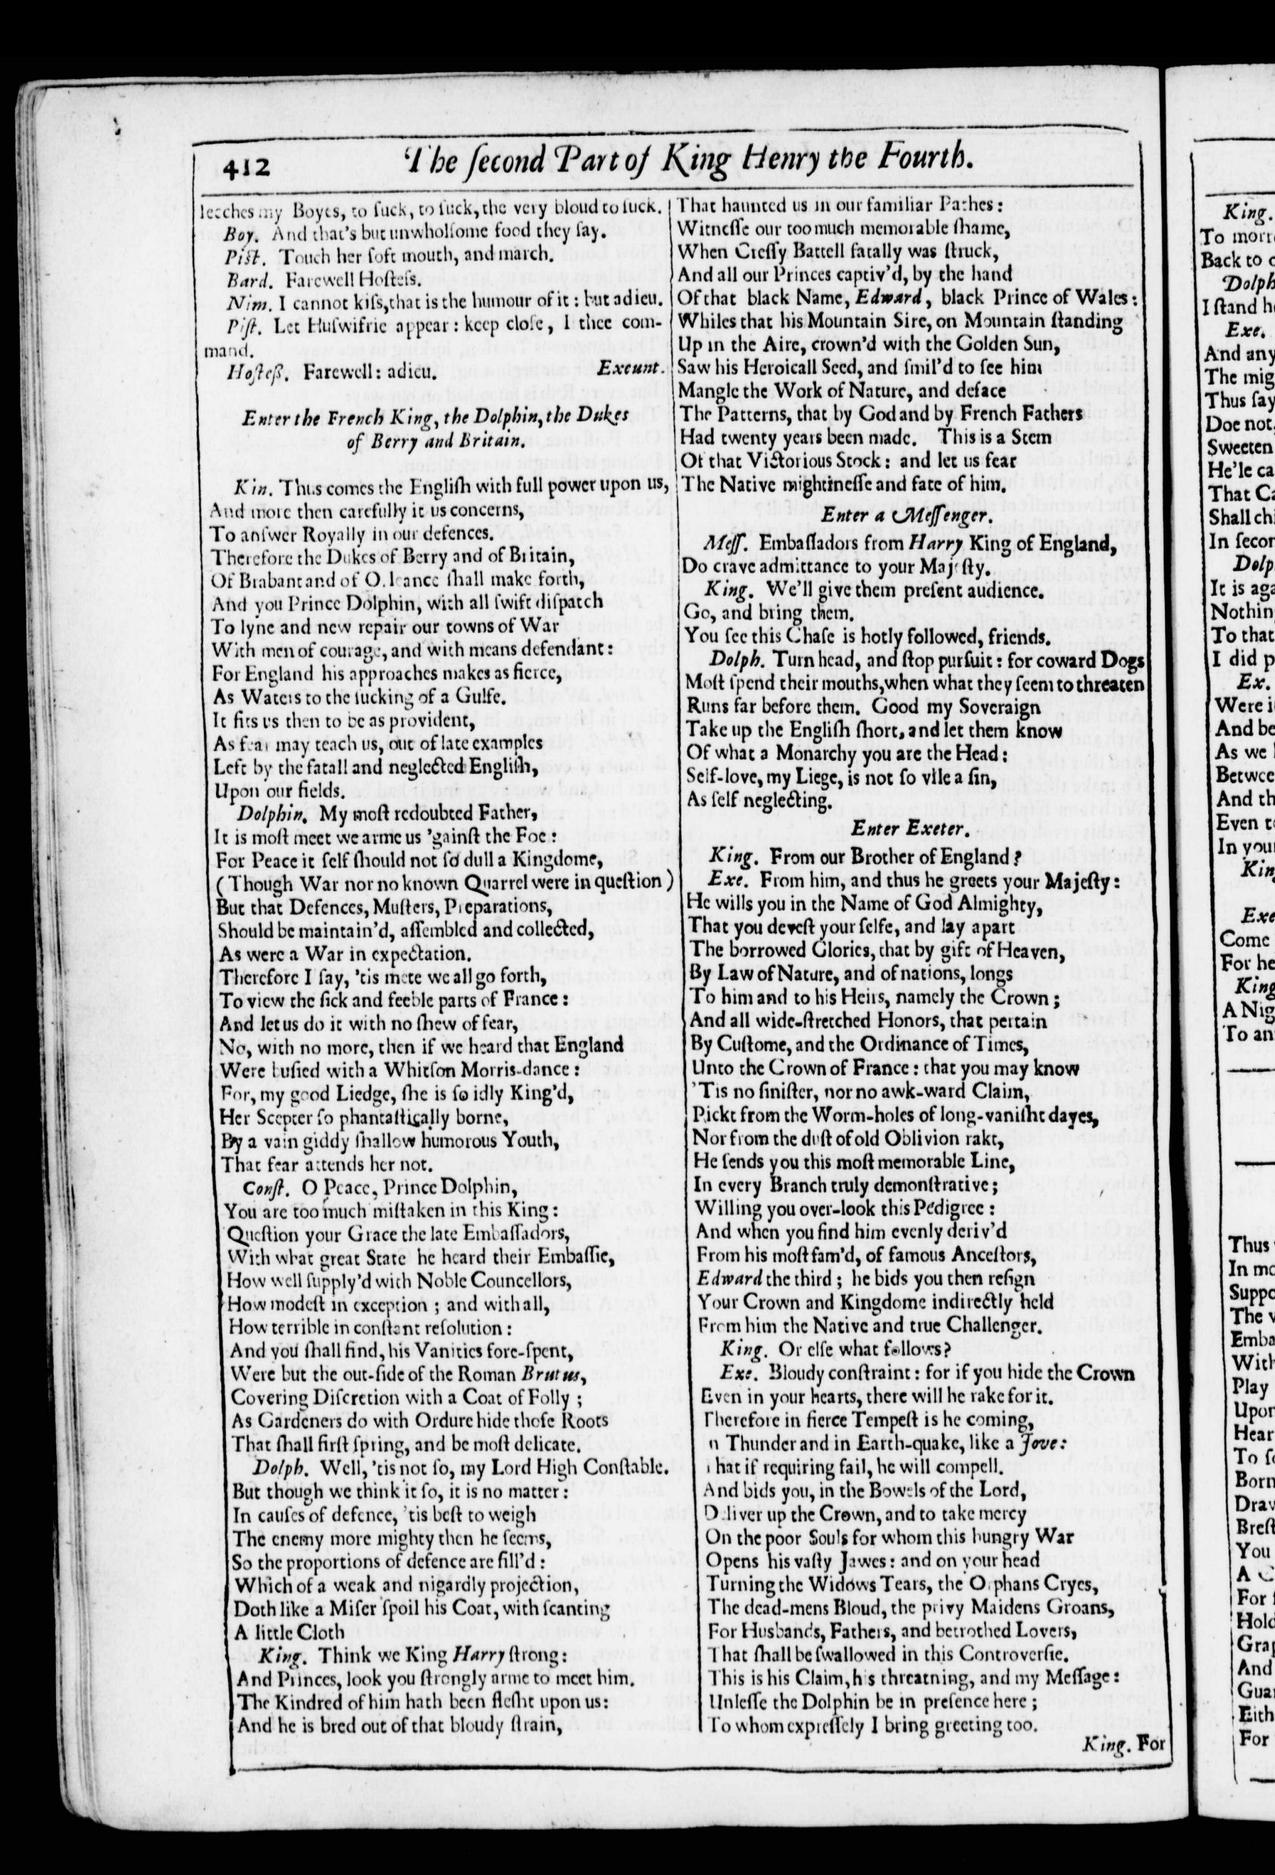 412 The ſecond Part of King Henry the Fourth.
leeches my Boyes, to ſuck, to ſuck, the very bloud to ſuck.
Boy. And that's but unwholſome food they ſay.
Piſt. Touch her ſoft mouth, and march.
Bard. Farewell Hoſteſs.
Nim. I cannot kiſs, that is the humour of it: but adieu.
Piſt. Let Huſwifrie appear: keep cloſe, I thee com-
mand.
Hoſteß. Farewell: adieu. Exeunt.
Enter the French King, the Dolphin, the Dukes
of Berry and Britain.
Kin. Thus comes the Engliſh with full power upon us,
And more then carefully it us concerns,
To anſwer Royally in our defences.
Therefore the Dukes of Berry and of Britain,
Of Brabant and of Orleance ſhall make forth,
And you Prince Dolphin, with all ſwift diſpatch
To lyne and new repair our towns of War
With men of courage, and with means defendant:
For England his approaches makes as fierce,
As Waters to the ſucking of a Gulfe.
It fits us then to be as provident,
As fear may teach us, out of late examples
Left by the fatall and neglected Engliſh,
Upon our fields.
Dolphin. My moſt redoubted Father,
It is moſt meet we arme us 'gainſt the Foe:
For Peace it ſelf ſhould not ſo dull a Kingdome,
(Though War nor no known Quarrel were in queſtion)
But that Defences, Muſters, Preparations,
Should be maintain'd, aſſembled and collected,
As were a War in expectation.
Therefore I ſay, 'tis mete we all go forth,
To view the ſick and feeble parts of France:
And let us do it with no ſhew of fear,
No, with no more, then if we heard that England
Were buſied with a Whitſon Morris-dance:
For, my good Liedge, ſhe is ſo idly King'd,
Her Scepter ſo phantaſtically borne,
By a vain giddy ſhallow humorous Youth,
That fear attends her not.
Conſt. O Peace, Prince Dolphin,
You are too much miſtaken in this King:
Queſtion your Grace the late Embaſſadors,
With what great State he heard their Embaſſie,
How well ſupply'd with Noble Councellors,
How modeſt in exception; and withall,
How terrible in conſtant reſolution:
And you ſhall find, his Vanities fore-ſpent,
Were but the out-ſide of the Roman Brutus,
Covering Diſcretion with a Coat of Folly;
As Gardeners do with Ordure hide thoſe Roots
That ſhall firſt ſpring, and be moſt delicate.
Dolph. Well, 'tis not ſo, my Lord High Conſtable.
But though we think it ſo, it is no matter:
In cauſes of defence, 'tis beſt to weigh
The enemy more mighty then he ſeems,
So the proportions of defence are fill'd:
Which of a weak and nigardly projection,
Doth like a Miſer ſpoil his Coat, with ſcanting
A little Cloth
King. Think we King Harry ſtrong:
And Princes, look you ſtrongly arme to meet him.
The Kindred of him hath been fleſht upon us:
And he is bred out of that bloudy ſtrain,
That haunted us in our familiar Pathes:
Witneſſe our too much memorable ſhame,
When Creſſy Battell fatally was ſtruck,
And all our Princes captiv'd, by the hand
Of that black Name, Edward, black Prince of Wales:
Whiles that his Mountain Sire, on Mountain ſtanding
Up in the Aire, crown'd with the Golden Sun,
Saw his Heroicall Seed, and ſmil'd to ſee him
Mangle the Work of Nature, and deface
The Patterns, that by God and by French Fathers
Had twenty years been made. This is a Stem
Of that Victorious Stock: and let us fear
The Native mightineſſe and fate of him.
Enter a Meſſenger.
Meſſ. Embaſſadors from Harry King of England,
Do crave admittance to your Majeſty.
King. We'll give them preſent audience.
Go, and bring them.
You ſee this Chaſe is hotly followed, friends.
Dolph. Turn head, and ſtop purſuit: for coward Dogs
Moſt ſpend their mouths, when what they ſeem to threaten
Runs far before them. Good my Soveraign
Take up the Engliſh ſhort, and let them know
Of what a Monarchy you are the Head:
Self-love, my Liege, is not ſo vile a ſin,
As ſelf neglecting.
Enter Exeter.
King. From our Brother of England?
Exe. From him, and thus he greets your Majeſty:
He wills you in the Name of God Almighty,
That you deveſt your ſelfe, and lay apart
The borrowed Glories, that by gift of Heaven,
By Law of Nature, and of nations, longs
To him and to his Heirs, namely the Crown;
And all wide-ſtretched Honors, that pertain
By Cuſtome, and the Ordinance of Times,
Unto the Crown of France: that you may know
'Tis no ſiniſter, nor no awk-ward Claim,
Pickt from the Worm-holes of long-vaniſht dayes,
Nor from the duſt of old Oblivion rakt,
He ſends you this moſt memorable Line,
In every Branch truly demonſtrative;
Willing you over-look this Pedigree:
And when you find him evenly deriv'd
From his moſt fam'd, of famous Anceſtors,
Edward the third; he bids you then reſign
Your Crown and Kingdome indirectly held
From him the Native and true Challenger.
King. Or elſe what follows?
Exe. Bloudy conſtraint: for if you hide the Crown
Even in your hearts, there will he rake for it.
Therefore in fierce Tempeſt is he coming,
n Thunder and in Earth-quake, like a Jove:
That if requiring fail, he will compell.
And bids you, in the Bowels of the Lord,
Deliver up the Crown, and to take mercy
On the poor Souls for whom this hungry War
Opens his vaſty Jawes: and on your head
Turning the Widows Tears, the Orphans Cryes,
The dead-mens Bloud, the privy Maidens Groans,
For Husbands, Fathers, and betrothed Lovers,
That ſhall be ſwallowed in this Controverſie.
This is his Claim, his threatning, and my Meſſage:
Unleſſe the Dolphin be in preſence here;
To whom expreſſely I bring greeting too.
King. For
King.
To morr
Back to o
Dolph
I ſtand h
Exe.
And any
The mig
Thus ſay
Doe not,
Sweeten
He'le ca
That Ca
Shall chi
In ſecon
Dolp
It is aga
Nothin
To that
I did p
Ex.
Were i
And be
As we
Betwee
And th
Even t
In your
Kin
Exe
Come
For he
King
A Nig
To an
Thus
In mo
Suppo
The
Emba
With
Play
Upon
Hear
To ſo
Born
Draw
Breſt
You
A
For
Hold
Grap
And
Guar
Eith
For